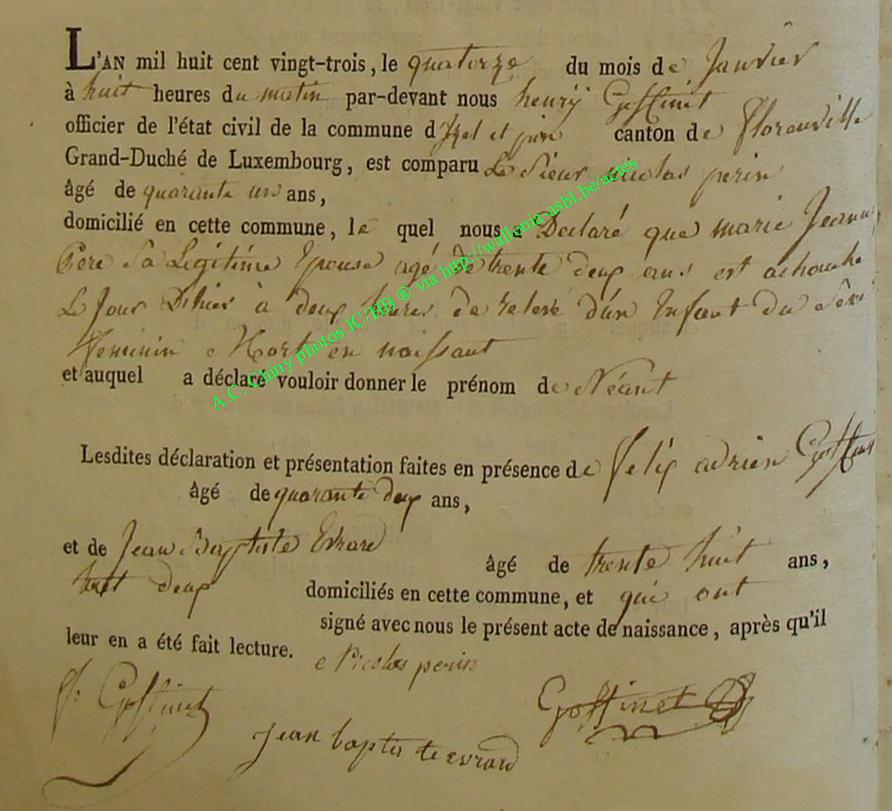 L'AN mil huit cent vingt-trois, le quatorze du mois de Janvier
à huit heures du matin par-devant nous henrÿ Goffinet
officier de l'état civil de la commune d'Izel et pin canton de florenville
Grand-Duché de Luxembourg, est comparu Le Sieur nicolas perin
âgé de quarante un ans,
domicilié en cette commune, le quel nous a Declaré que marie Jeanne
Sa Legitime Epouse agé de trente deux ans est achouché
Le Jour D'hier à deux heures de d'un Enfant du Sexe
feminin Mort en naissant
et auquel a déclaré vouloir donner le prénom de Néant
Lesdites déclaration et présentation faites en présence de felix adrien Goffinet
âgé de quarante deux ans,
et de Jean Baptiste Evrard
âgé de trente huit ans,
deux domiciliés en cette commune, et qui ont
signé avec nous le présent acte de naissance, après qu'il
leur en a été fait lecture.
Nicolas perin
f. Goffinet
Goffinet
Jean baptiste evrard
A.C. Chiny photos JC/HB ® via http://wallonia-asbl.be/actes